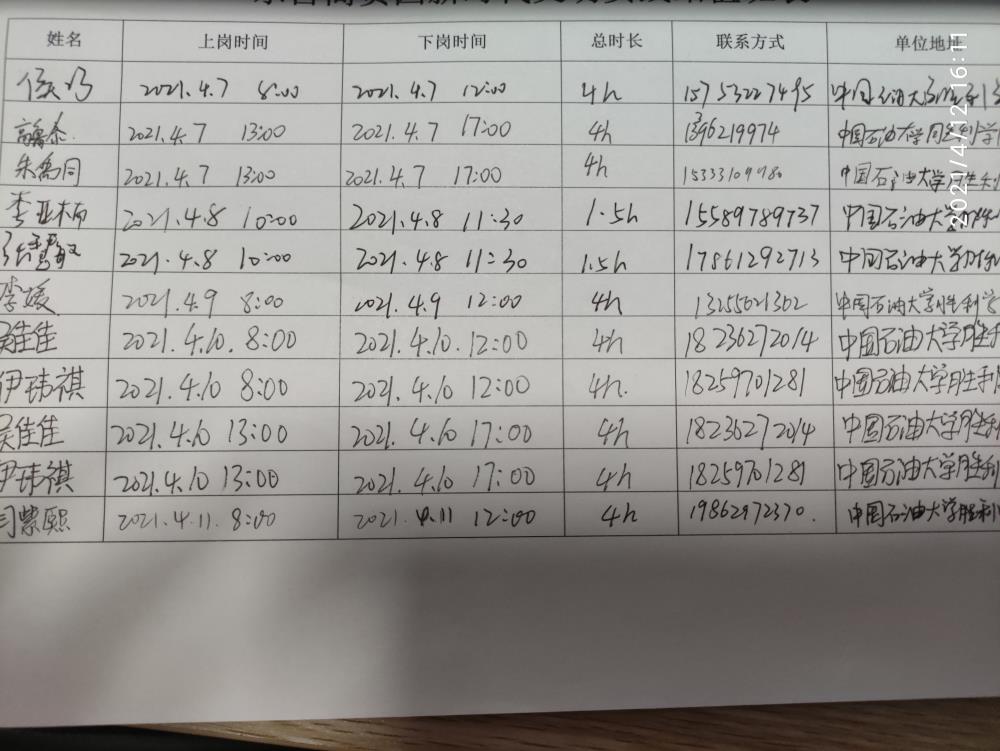 姓名 上岗时间 下岗时间 总时长 联系方式 单位地址
2021.4.7 8:00 2021.4.7 12:00 4h 15753227495 中国石油大学
2021.4.7 13:00 2021.4.7 17:00 4h 13396219974 中国石油大学
朱禹同 2021.4.7 13:00 2021.4.7 17:00 4h 15333109780 中国石油大学胜利
李亚楠 2021.4.8 10:00 2021.4.8 11:30 1.5h 15589789737 中国石油大学
2021.4.8 10:00 2021.4.8 11:30 1.5h 17861292713 中国石油大学胜利
李媛 2021.4.9 8:00 2021.4.9 12:00 4h 13255621362 中国石油大学胜利学
吴佳佳 2021.4.10. 8:00 2021.4.10. 12:00 4h 18236272014 中国石油大学胜利
伊玮祺 2021.4.10 8:00 2021.4.10 12:00 4h. 18259701281 中国石油大学胜利
吴佳佳 2021.4.10 13:00 2021.4.10 17:00 4h 18236272014 中国石油大学胜利
伊玮祺 2021.4.10 13:00 2021.4.10 17:00 4h 18259701281 中国石油大学胜利
司紫熙 2021.4.11. 8:00 2021.4.11 12:00 4h 19862972370. 中国石油大学胜利
2021/4/12 16:11